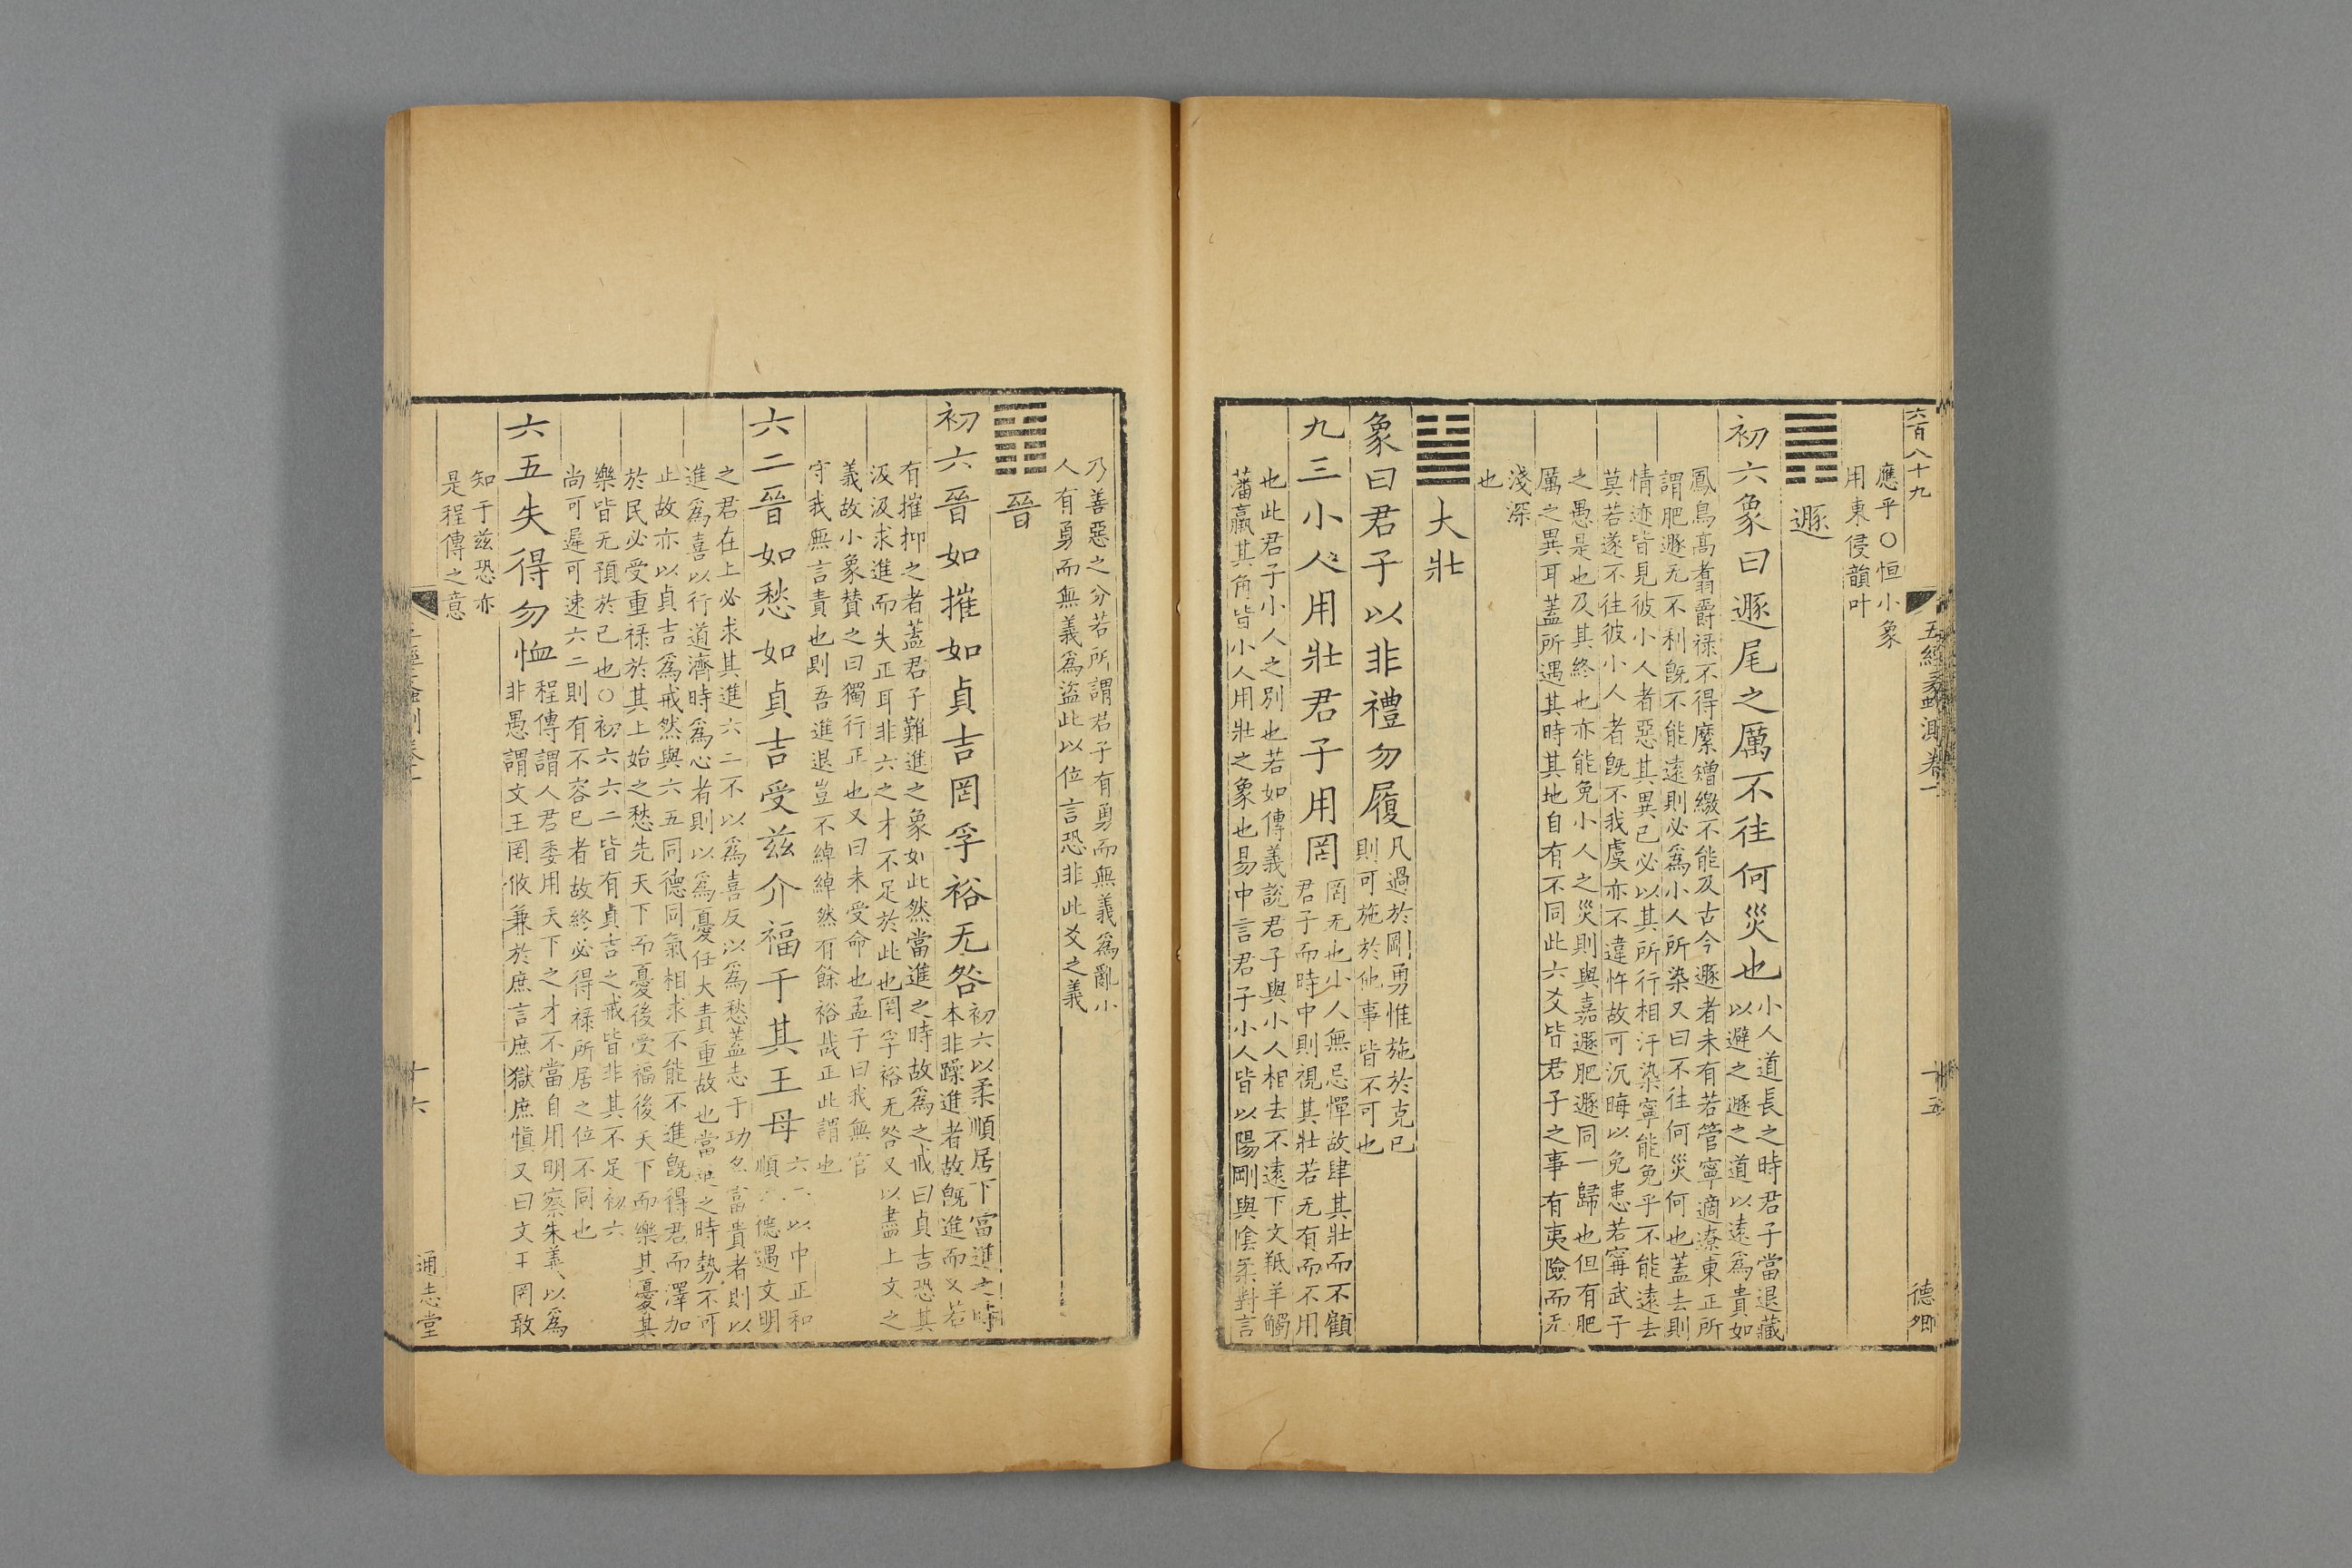 六百八十九
五經蠡測卷一
十五
德卿
應乎○恒小象
用東侵韻叶
遯
初六象曰遯尾之厲不往何災也
小人道長之時君子當退藏
以避之遯之道以遠為貴如
鳳鳥高翥爵祿不得縻矰繳不能及古今遯者未有若管寧適遼東正所
謂肥遯无不利旣不能遠則必為小人所染又曰不往何災何也蓋去則
情迹皆見彼小人者惡其異已必以其所行相汙染寧能免乎不能遠去
莫若遂不往彼小人者旣不我虞亦不違忤故可沉晦以免患若寗武子
之愚是也及其終也亦能免小人之災則與嘉遯肥遯同一歸也但有肥
厲之異耳蓋所遇其時其地自有不同此六爻皆君子之事有夷險而无
淺深
也
大壯
象曰君子以非禮勿履
凡過於剛勇惟施於克已
則可施於他事皆不可也
九三小人用壯君子用罔
罔无也小人無忌憚故肆其壯而不顧
君子而時中則視其壯若无有而不用
也此君子小人之別也若如傳義說君子與小人相去不遠下文羝羊觸
藩羸其角皆小人用壯之象也易中言君子小人皆以陽剛與陰柔對言
乃善惡之分若所謂君子有勇而無義為亂小
人有勇而無義為盜此以位言恐非此爻之義
晉
初六晉如摧如貞吉罔孚裕无咎
初六以柔順居下當進之時
本非躁進者故旣進而又若
有摧抑之者蓋君子難進之象如此然當進之時故為之戒曰貞吉恐其
汲汲求進而失正耳非六之才不足於此也罔孚裕无咎又以盡上文之
義故小象贊之曰獨行正也又曰未受命也孟子曰我無官
守我無言責也則吾進退豈不綽綽然有餘裕哉正此謂也
六二晉如愁如貞吉受兹介福于其王母
六二以中正和
順之德遇文明
之君在上必求其進六二不以為喜反以為愁蓋志于功名富貴者則以
進為喜以行道濟時為心者則以為憂任大責重故也當進之時勢不可
止故亦以貞吉為戒然與六五同德同氣相求不能不進旣得君而澤加
於民必受重祿於其上始之愁先天下而憂後受福後天下而樂其憂其
樂皆无預於已也○初六六二皆有貞吉之戒皆非其不足初六
尚可遲可速六二則有不容已者故終必得祿所居之位不同也
六五失得勿恤
程傳謂人君委用天下之才不當自用明察朱義以為
非愚謂文王罔攸兼於庶言庶獄庶愼又曰文王罔敢
知于兹恐亦
是程傳之意
十六
通志堂